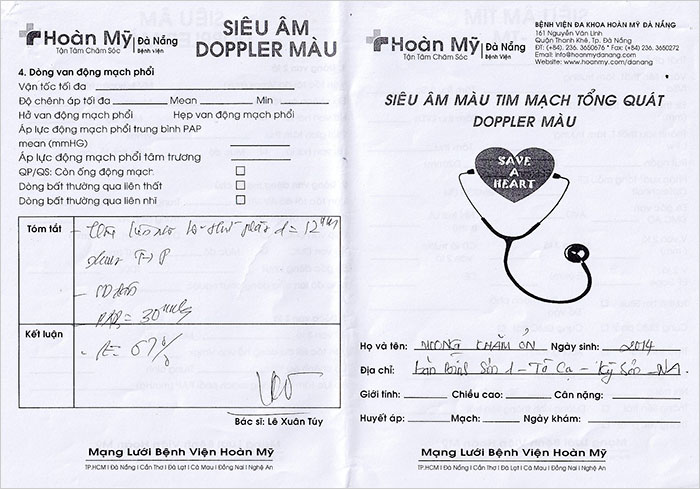 Hoàn Mỹ | Đà Nẵng
Tận Tâm Chăm Sóc Bệnh viện
SIÊU ÂM
DOPPLER MÀU
4. Dòng van động mạch phổi
Vận tốc tối đa
Độ chênh áp tối đa Mean Min
Hở van động mạch phổi Hẹp van động mạch phổi
Áp lực động mạch phổi trung bình PAP
mean (mmHG)
Áp lực động mạch phổi tâm trương
QP/QS: Còn ống động mạch
Dòng bất thường qua liên thất
Dòng bất thường qua liên nhĩ
Tóm tắt
= 12
= 30
Kết luận
= 67%
Bác sĩ: Lê Xuân Túy
Mạng Lưới Bệnh Viện Hoàn Mỹ
TP.HCM I Đà Nẵng I Cần Thơ I Đà Lạt I Cà Mau I Đồng Nai I Nghệ An
Hoàn Mỹ | Đà Nẵng
Tận Tâm Chăm Sóc Bệnh viện
BỆNH VIỆN ĐA KHOA HOÀN MỸ ĐÀ NẴNG
161 Nguyễn Văn Linh
Quận Thanh Khê, Tp. Đà Nẵng
ĐT: (+84). 236. 3650676 * Fax: (+84) 236. 3650272
Email: info@hoanmydanang.com
Website: www.hoanmy.com/danang
SIÊU ÂM MÀU TIM MẠCH TỔNG QUÁT
DOPPLER MÀU
SAVE
A
HEART
Họ và tên: MOONG KHĂM ỐN Ngày sinh: 2014
Địa chỉ: 1 - Tà Cạ - Kỳ Sơn - NA
Giới tính: Chiều cao: Cân nặng:
Huyết áp: Mạch: Ngày khám:
Mạng Lưới Bệnh Viện Hoàn Mỹ
TP.HCM I Đà Nẵng I Cần Thơ I Đà Lạt I Cà Mau I Đồng Nai I Nghệ An